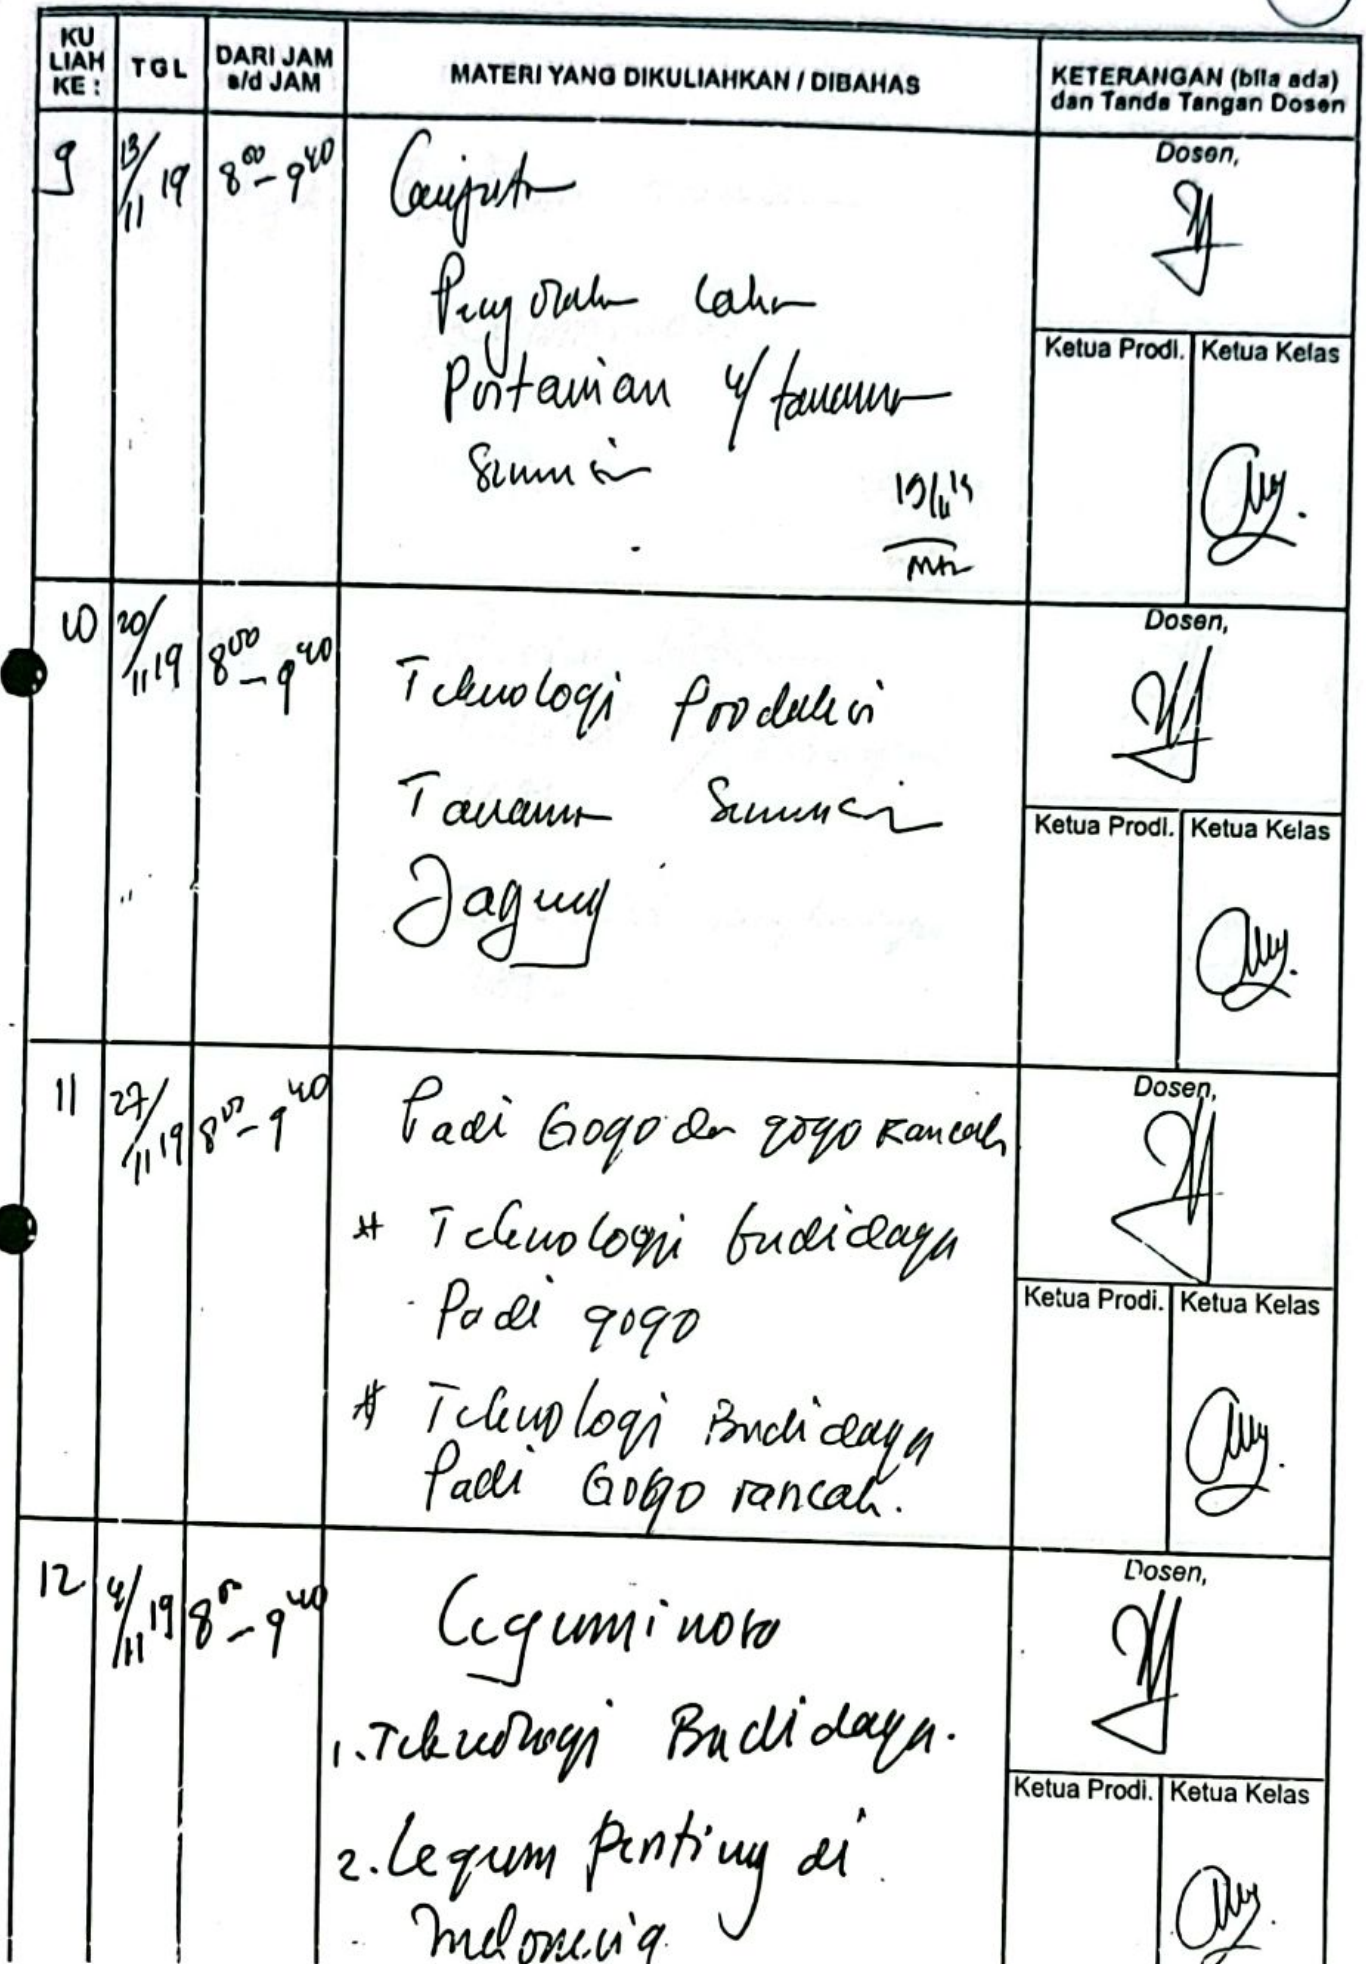 KU LIAH KE :
TGL
DARI JAM s/d JAM
MATERI YANG DIKULIAHKAN / DIBAHAS
KETERANGAN (bila ada) dan Tanda Tangan Dosen
9
13/11 19
8⁰⁰ - 9⁴⁰
Lanjutan
Pengolahan lahan
Pertanian u/ tanaman
Semusim
19/11 19
Dosen,
Ketua Prodi.
Ketua Kelas
10
20/11 19
8⁰⁰ - 9⁴⁰
Teknologi Produksi
Tanaman Semusim
Jagung
Dosen,
Ketua Prodi.
Ketua Kelas
11
27/11 19
8⁰⁰ - 9⁴⁰
Padi Gogo dan gogo Rancah
# Teknologi budidaya
Padi gogo
# Teknologi Budidaya
Padi Gogo rancah.
Dosen,
Ketua Prodi.
Ketua Kelas
12
4/11 19
8⁰⁰ - 9⁴⁰
Leguminosa
1. Teknologi Budidaya.
2. Legum Penting di
Indonesia
Dosen,
Ketua Prodi.
Ketua Kelas